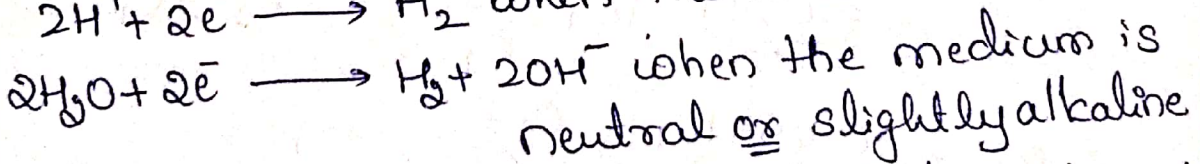 2H⁺ + 2e⁻ ⟶ H₂
2H₂O + 2e⁻ ⟶ H₂ + 2OH⁻ when the medium is
neutral or slightly alkaline